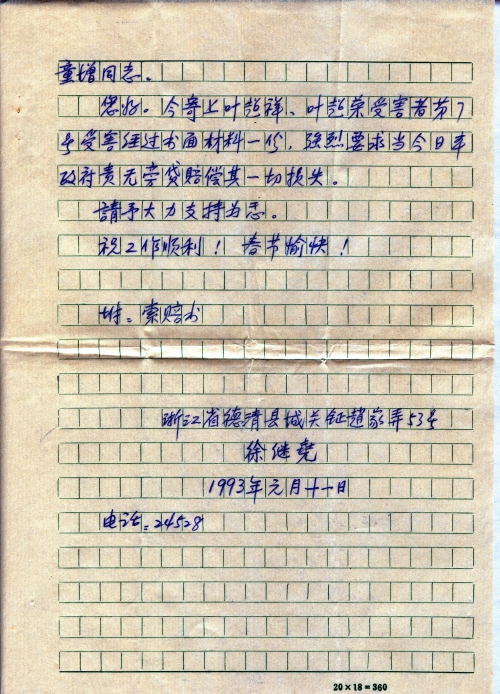 童增同志。
您好。今寄上叶哲祥、叶哲荣受害者苐7
号受害经过书面材料一份，强烈要求当今日本
政府责无旁贷赔偿其一切损失。
請予大力支持为志。
祝工作顺利！春节愉快！
附：索赔书
浙江省德清县城关钲趙家弄53号
徐继尧
1993年元月十一日
电话：24528
20×18=360